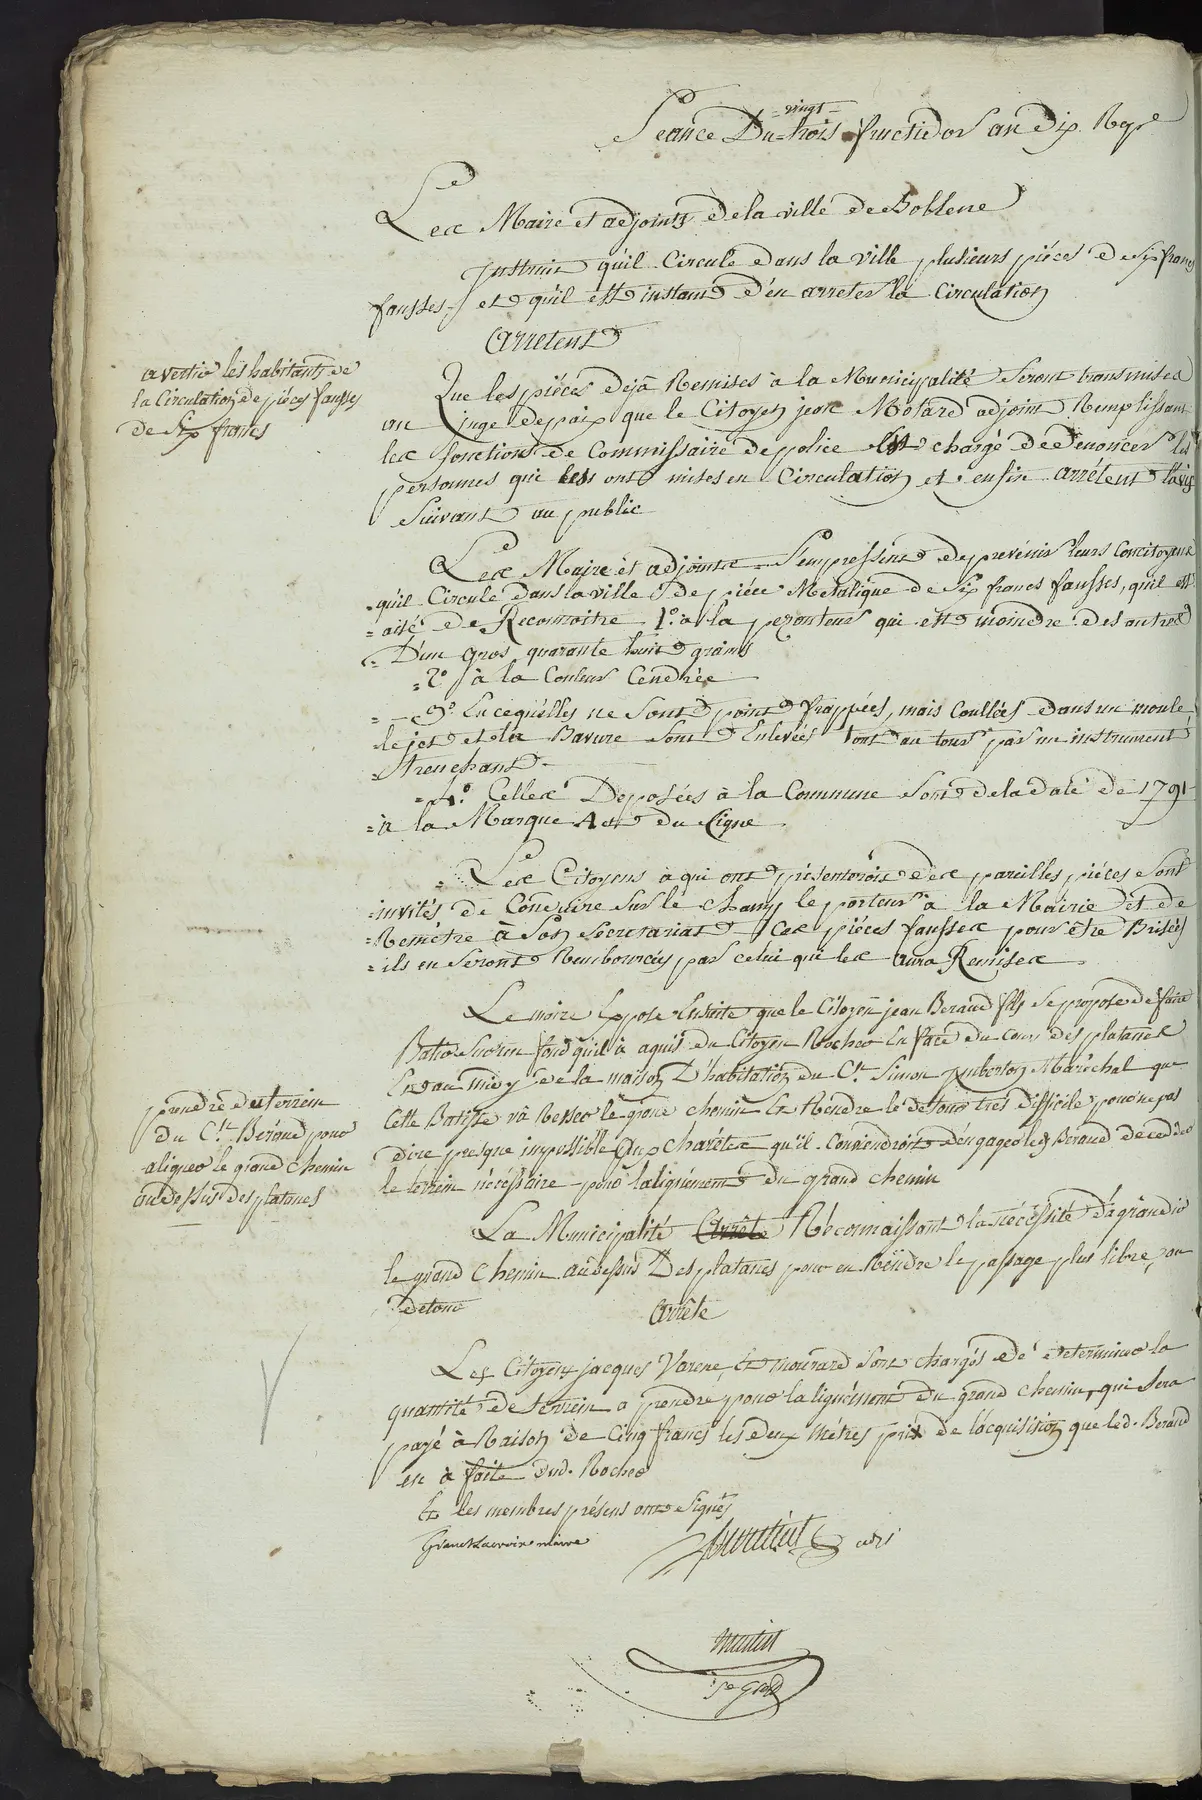 Seance Du vingt trois fructidor an Dix Repe
Les Maire et adjoints de la ville de Bollene
Instruits qu'il Circule dans la ville plusieurs piéces de six francs
fausses, et qu'il est instant d'en arreter la Circulation
Arretent
avertir les habitants de
la Circulation de piéces fausses
de Six francs
Que les piéces déjà Remises à la Municipalité Seront transmises
au Juge de paix que le Citoyen jean Motard adjoint Remplissant
les fonctions de Commissaire de police Est chargé de denoncer les
personnes qui les ont mises en Circulation et enfin arrétent l'avis
Suivant au public
Les Maire et adjoints S'empressent de prevénir leurs Concitoyens
qu'il Circule dans la ville de piéce Metalique de Six francs fausses, qu'il est
aisé de Reconnoitre 1.o à la pezenteur qui est moindre des autres
D'un Gros quarante huit grains
2.o à la Couleur Cendrée
3.o En ce qu'elles ne Sont point frappées, mais Coullées dans un moule
le jet et la Bavure Sont Enlevées tout au tour par un instrument
trenchant
4.o Celles Deposées à la Commune Sont de la date de 1791
à la Marque A et du Cigne
Les Citoyens à qui ont présenteroit des pareilles piéces Sont
invités de Conduire Sur le champ le porteur à la Mairie et de
Remétre à Son Sécretariat Ces piéces fausses pour être Brisées
ils en Seront Remboursés par celui qui les aura Remises
Le maire Expose Ensuite que le Citoyen jean Beraud fils se propose de faire
Batir Sur un fond qu'il à aquis du Citoyen Rocher En face du Cours des platanes
Et au midy de la maison D'habitation du C.n Simon Imberton Maréchal que
Cette Batisse và Resserer le grand chemin Et Rendre le détour trés difficile pour ne pas
dire presque impossible Aux charétes qu'il Conviendroit d'engager led Beraud de ceder
le terrein nécéssaire pour l'alignement du grand chemin
prendre du terrein
du C.n Béraud pour
aligner le grand chemin
au dessus des platanes
La Municipalité Arrête Réconnaissant la nécéssité d'agrandir
le grand Chemin au dessus Des platanes pour en Rendre le passage plus libre, au
détour Arrête
Les Citoyens jacques Varene, Et mourard Sont chargés de déterminer la
quantité de terrein a prendre pour l'aliguément du grand chemin, qui Sera
payé à Raison de Cinq francs les deux métres prix de l'acquisition que led. Beraud
en à faite dud. Rocher
Et les membres présens ont Signés
maire
adj